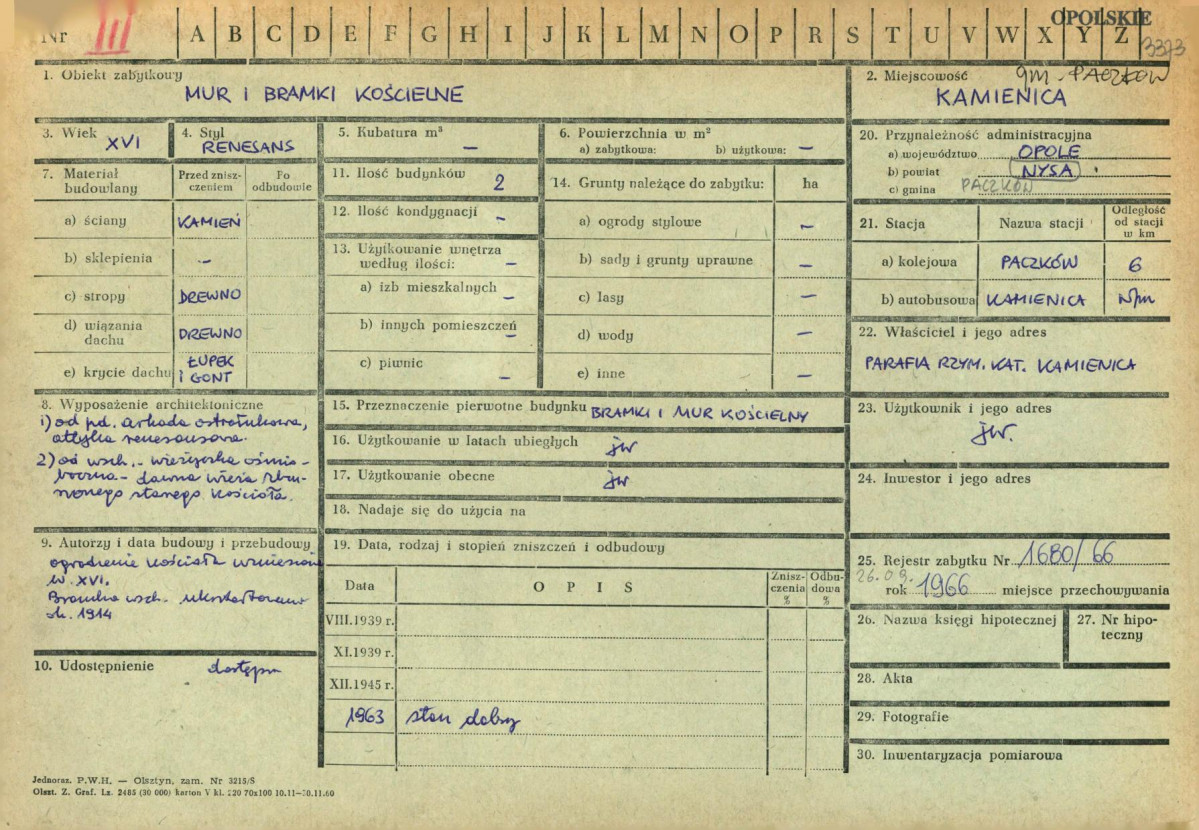 OPOLSKIE
Nr III A B C D E F G H I J K L M N O P R S T U V W X Y Z 3373
1. Obiekt zabytkowy
MUR I BRAMKI KOŚCIELNE
2. Miejscowość gm. PACZKÓW
KAMIENICA
3. Wiek
XVI
4. Styl
RENESANS
5. Kubatura m³
—
6. Powierzchnia w m²
a) zabytkowa: b) użytkowa: —
7. Materiał budowlany
Przed zniszczeniem
Po odbudowie
a) ściany KAMIEŃ
b) sklepienia —
c) stropy DREWNO
d) wiązania dachu DREWNO
e) krycie dachu ŁUPEK I GONT
8. Wyposażenie architektoniczne
1) od pd. arkada ostrołukowa,
attyka renesansowa.
2) od wsch. - wieżyczka ośmio-
boczna - dawna wieża zbu-
rzonego starego kościoła.
9. Autorzy i data budowy i przebudowy
ogrodzenie kościoła wzniesione
w. XVI.
Bramka wsch.
ok. 1914
10. Udostępnienie dostępny
11. Ilość budynków 2
12. Ilość kondygnacji —
13. Użytkowanie wnętrza
według ilości: —
a) izb mieszkalnych —
b) innych pomieszczeń —
c) piwnic —
14. Grunty należące do zabytku: ha
a) ogrody stylowe —
b) sady i grunty uprawne —
c) lasy —
d) wody —
e) inne —
15. Przeznaczenie pierwotne budynku BRAMKI I MUR KOŚCIELNY
16. Użytkowanie w latach ubiegłych jw
17. Użytkowanie obecne jw
18. Nadaje się do użycia na
19. Data, rodzaj i stopień zniszczeń i odbudowy
Data OPIS Zniszczenia % Odbudowa %
VIII.1939 r.
XI.1939 r.
XII.1945 r.
1963 stan dobry
20. Przynależność administracyjna
a) województwo OPOLE
b) powiat NYSA
c) gmina PACZKÓW
21. Stacja Nazwa stacji Odległość od stacji w km
a) kolejowa PACZKÓW 6
b) autobusowa KAMIENICA w/m
22. Właściciel i jego adres
PARAFIA RZYM. KAT. KAMIENICA
23. Użytkownik i jego adres
jw.
24. Inwestor i jego adres
25. Rejestr zabytku Nr 1680/66
26.09.
rok 1966 miejsce przechowywania
26. Nazwa księgi hipotecznej
27. Nr hipoteczny
28. Akta
29. Fotografie
30. Inwentaryzacja pomiarowa
Jednoraz. P.W.H. — Olsztyn, zam. Nr 3215/S
Olszt. Z. Graf. Lz. 2485 (30 000) karton V kl. 220 70x100 10.11—30.11.60